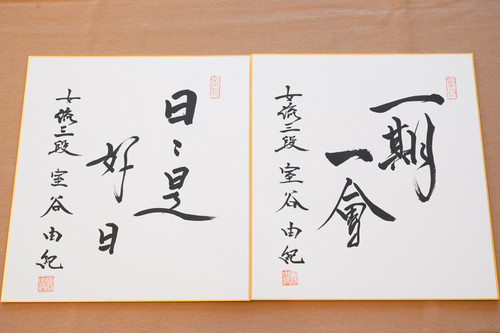 一期
一會
女流三段 室谷由紀
日々是
好日
女流三段 室谷由紀